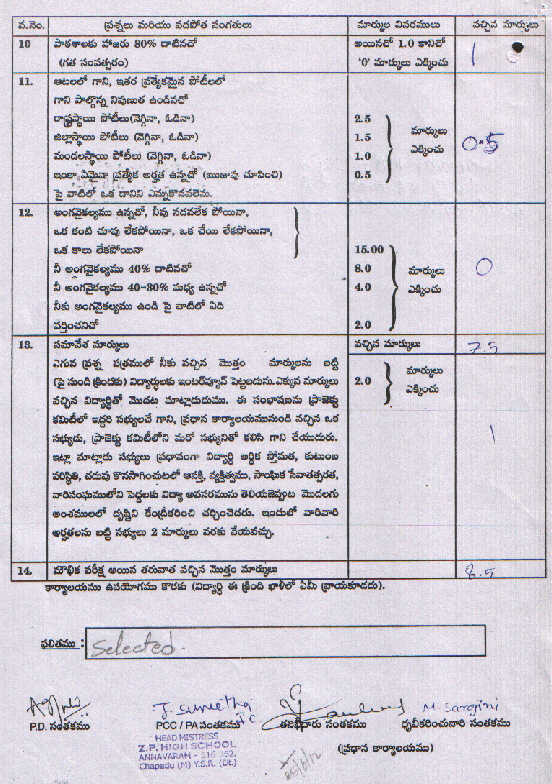 వ.నెం. ప్రశ్నలు మరియు వడపోత సంగతులు మార్కుల వివరములు వచ్చిన మార్కులు
10 పాఠశాలకు హాజరు 80% దాటినచో అయినచో 1.0 కానిచో 1
(గత సంవత్సరం) '0' మార్కులు ఎక్కించు
11. ఆటలలో గాని, ఇతర ప్రత్యేకమైన పోటీలలో
గాని పాల్గొన్న నిపుణత ఉండినచో
రాష్ట్రస్థాయి పోటీలు(నెగ్గినా, ఓడినా) 2.5 మార్కులు
జిల్లాస్థాయి పోటీలు (నెగ్గినా, ఓడినా) 1.5 ఎక్కించు 0.5
మండలస్థాయి పోటీలు (నెగ్గినా, ఓడినా) 1.0
ఇంకా ఏమైనా ప్రత్యేక అర్హత ఉన్నచో (ఋజువు చూపించి) 0.5
పై వాటిలో ఒక దానిని ఎన్నుకొనవలెను.
12. అంగవైకల్యము ఉన్నచో, నీవు నడవలేక పోయినా,
ఒక కంటి చూపు లేకపోయినా, ఒక చేయి లేకపోయినా,
ఒక కాలు లేకపోయినా 15.00
నీ అంగవైకల్యము 40% దాటినచో 8.0 మార్కులు 0
నీ అంగవైకల్యము 40-80% మధ్య ఉన్నచో 4.0 ఎక్కించు
నీకు అంగవైకల్యము ఉండి పై వాటిలో ఏది
వర్తించనిచో 2.0
13. సమావేశ మార్కులు వచ్చిన మార్కులు 7.5
ఎగువ ప్రశ్న పత్రములో నీకు వచ్చిన మొత్తం మార్కులను బట్టి మార్కులు
(పై నుండి క్రిందకు) విద్యార్థులకు ఇంటర్వ్యూవ్ పెట్టబడును.ఎక్కువ మార్కులు 2.0 ఎక్కించు
వచ్చిన విద్యార్థితో మొదట మాట్లాడుదుము. ఈ సంభాషణను ప్రాజెక్టు
కమిటీలో ఇద్దరి సభ్యులచే గాని, ప్రధాన కార్యాలయమునుండి వచ్చిన ఒక
సభ్యుడు, ప్రాజెక్టు కమిటీలోని మరో సభ్యునితో కలిసి గాని చేయుదురు. 1
ఇట్లా మాట్లాడు సభ్యులు ప్రధానంగా విద్యార్థి ఆర్థిక స్తోమత, కుటుంబ
పరిస్థితి, చదువు కొనసాగించుటలో ఆసక్తి, వ్యక్తిత్వము, సాంఘిక సేవాతత్పరత,
వారిసంఘములోని పెద్దలకు విద్యా అవసరమును తెలియజెప్పుట మొదలగు
అంశములలో దృష్టిని కేంద్రీకరించి చర్చించెదరు. ఇందులో వారివారి
అర్హతలను బట్టి సభ్యులు 2 మార్కులు వరకు వేయవచ్చు.
14. మౌఖిక పరీక్ష అయిన తరువాత వచ్చిన మొత్తం మార్కులు 8.5
కార్యాలయము ఉపయోగము కొరకు (విద్యార్థి ఈ క్రింది ఖాళీలో ఏమీ వ్రాయకూడదు).
ఫలితము : Selected.
J. Suneetha M. Sarojini
P.D. సంతకము PCC / PA సంతకము తణిఖీదారు సంతకము ధృవీకరించువారి సంతకము
HEAD MISTRESS (ప్రధాన కార్యాలయము)
Z.P. HIGH SCHOOL
ANNAVARAM - 516 362.
Chapadu (M) Y.S.R. (Dt.)